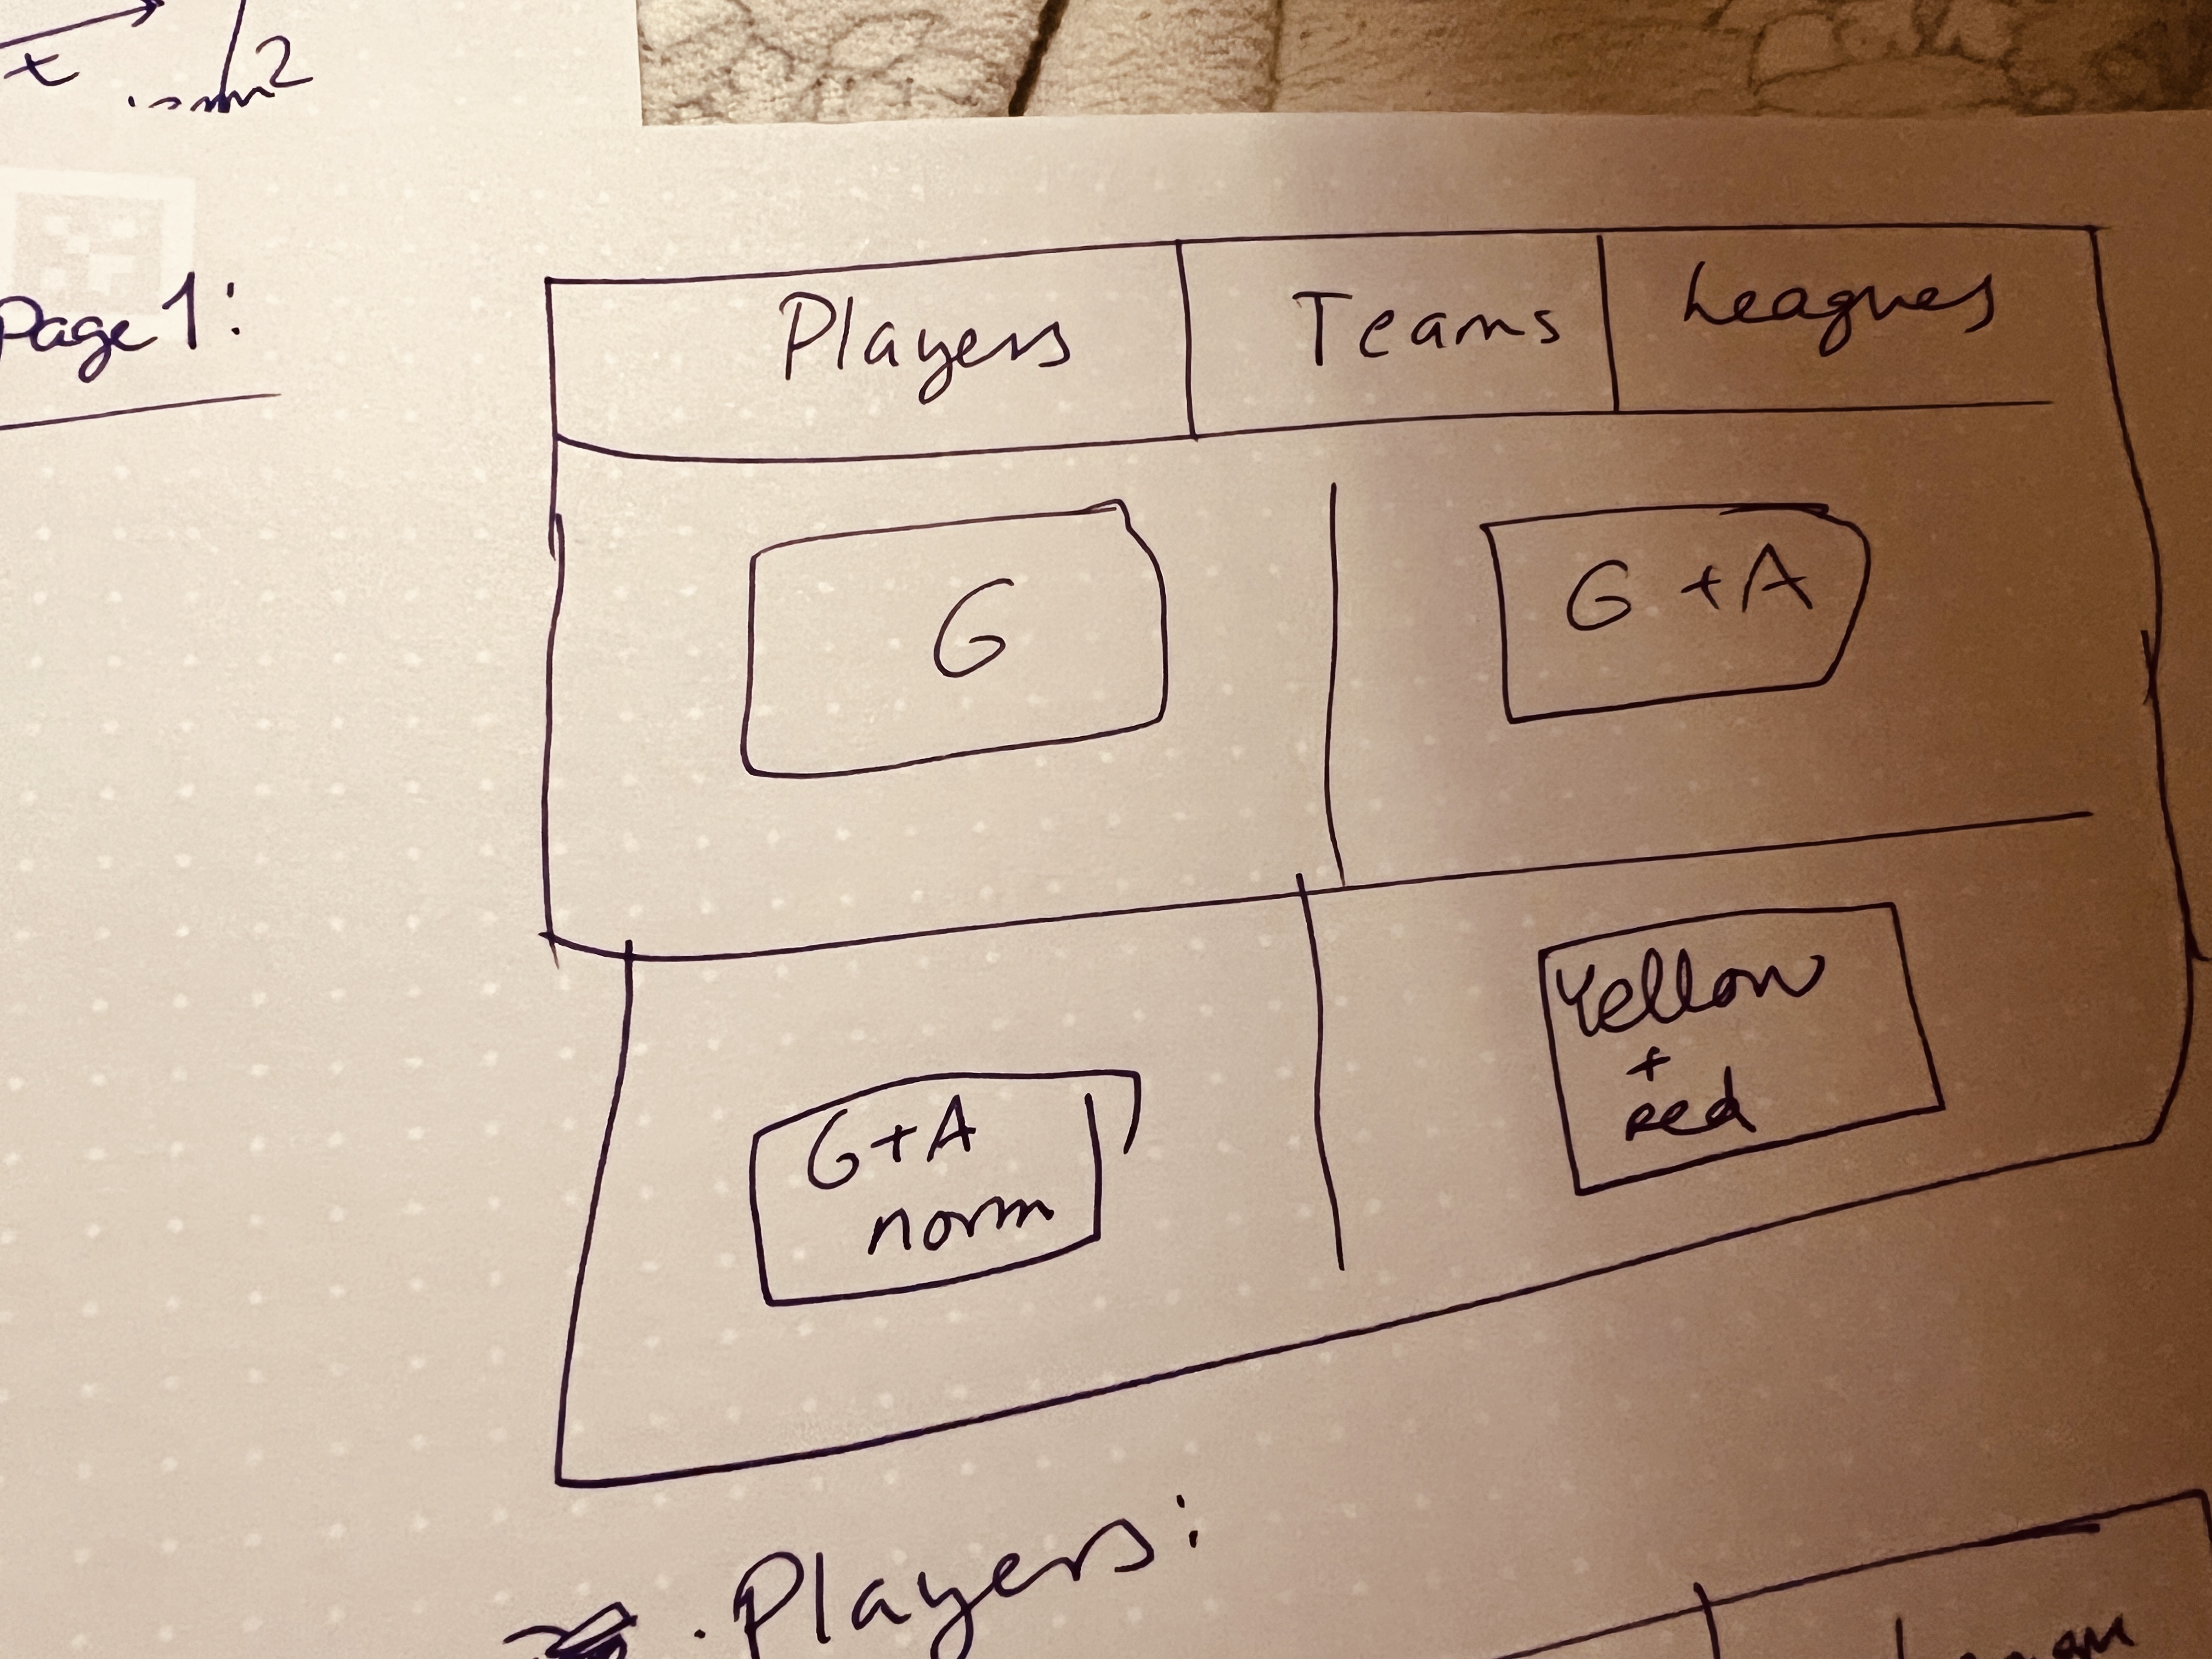 t
2
Page 1:
Players Teams Leagues
G G + A
G+A
norm
Yellow
+
red
. Players: